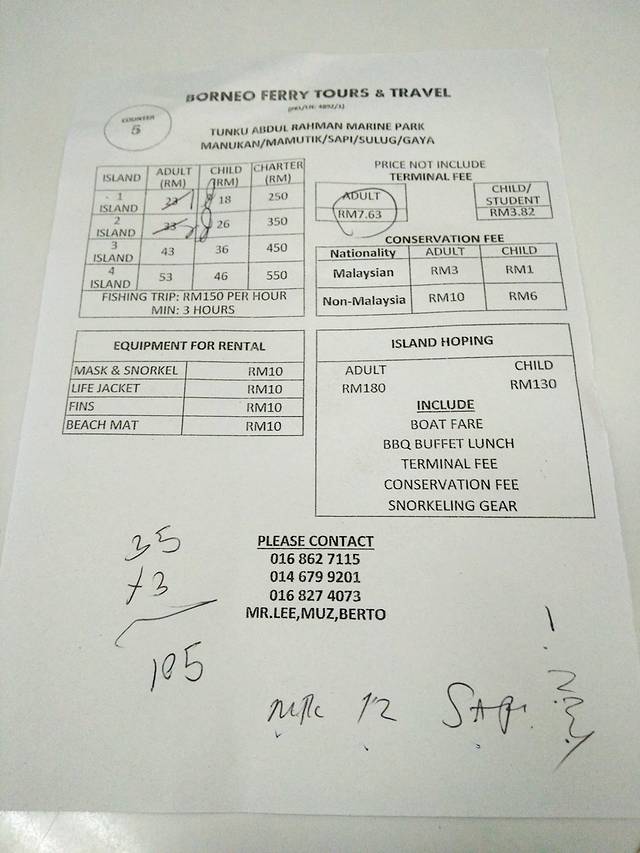 BORNEO FERRY TOURS & TRAVEL
COUNTER
5
TUNKU ABDUL RAHMAN MARINE PARK
MANUKAN/MAMUTIK/SAPI/SULUG/GAYA
ISLAND ADULT (RM) CHILD (RM) CHARTER (RM)
1 ISLAND 23 18 250
2 ISLAND 33 26 350
3 ISLAND 43 36 450
4 ISLAND 53 46 550
FISHING TRIP: RM150 PER HOUR
MIN: 3 HOURS
PRICE NOT INCLUDE
TERMINAL FEE
ADULT CHILD/ STUDENT
RM7.63 RM3.82
CONSERVATION FEE
Nationality ADULT CHILD
Malaysian RM3 RM1
Non-Malaysia RM10 RM6
EQUIPMENT FOR RENTAL
MASK & SNORKEL RM10
LIFE JACKET RM10
FINS RM10
BEACH MAT RM10
ISLAND HOPING
ADULT CHILD
RM180 RM130
INCLUDE
BOAT FARE
BBQ BUFFET LUNCH
TERMINAL FEE
CONSERVATION FEE
SNORKELING GEAR
PLEASE CONTACT
016 862 7115
014 679 9201
016 827 4073
MR.LEE,MUZ,BERTO
35
3
105
12